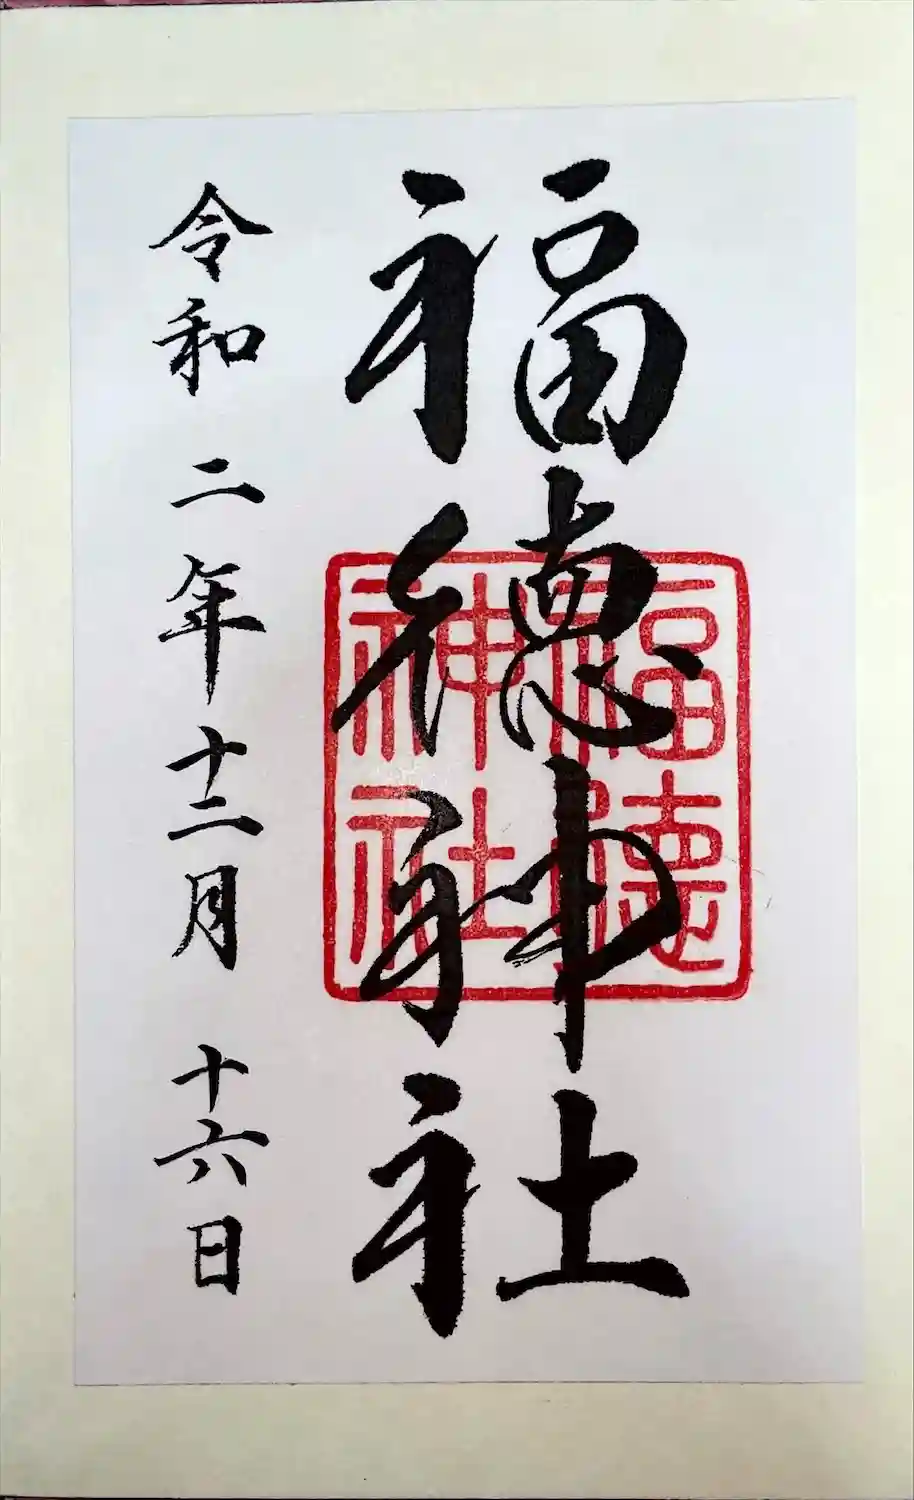 福徳神社
福徳
神社
令和二年十二月十六日